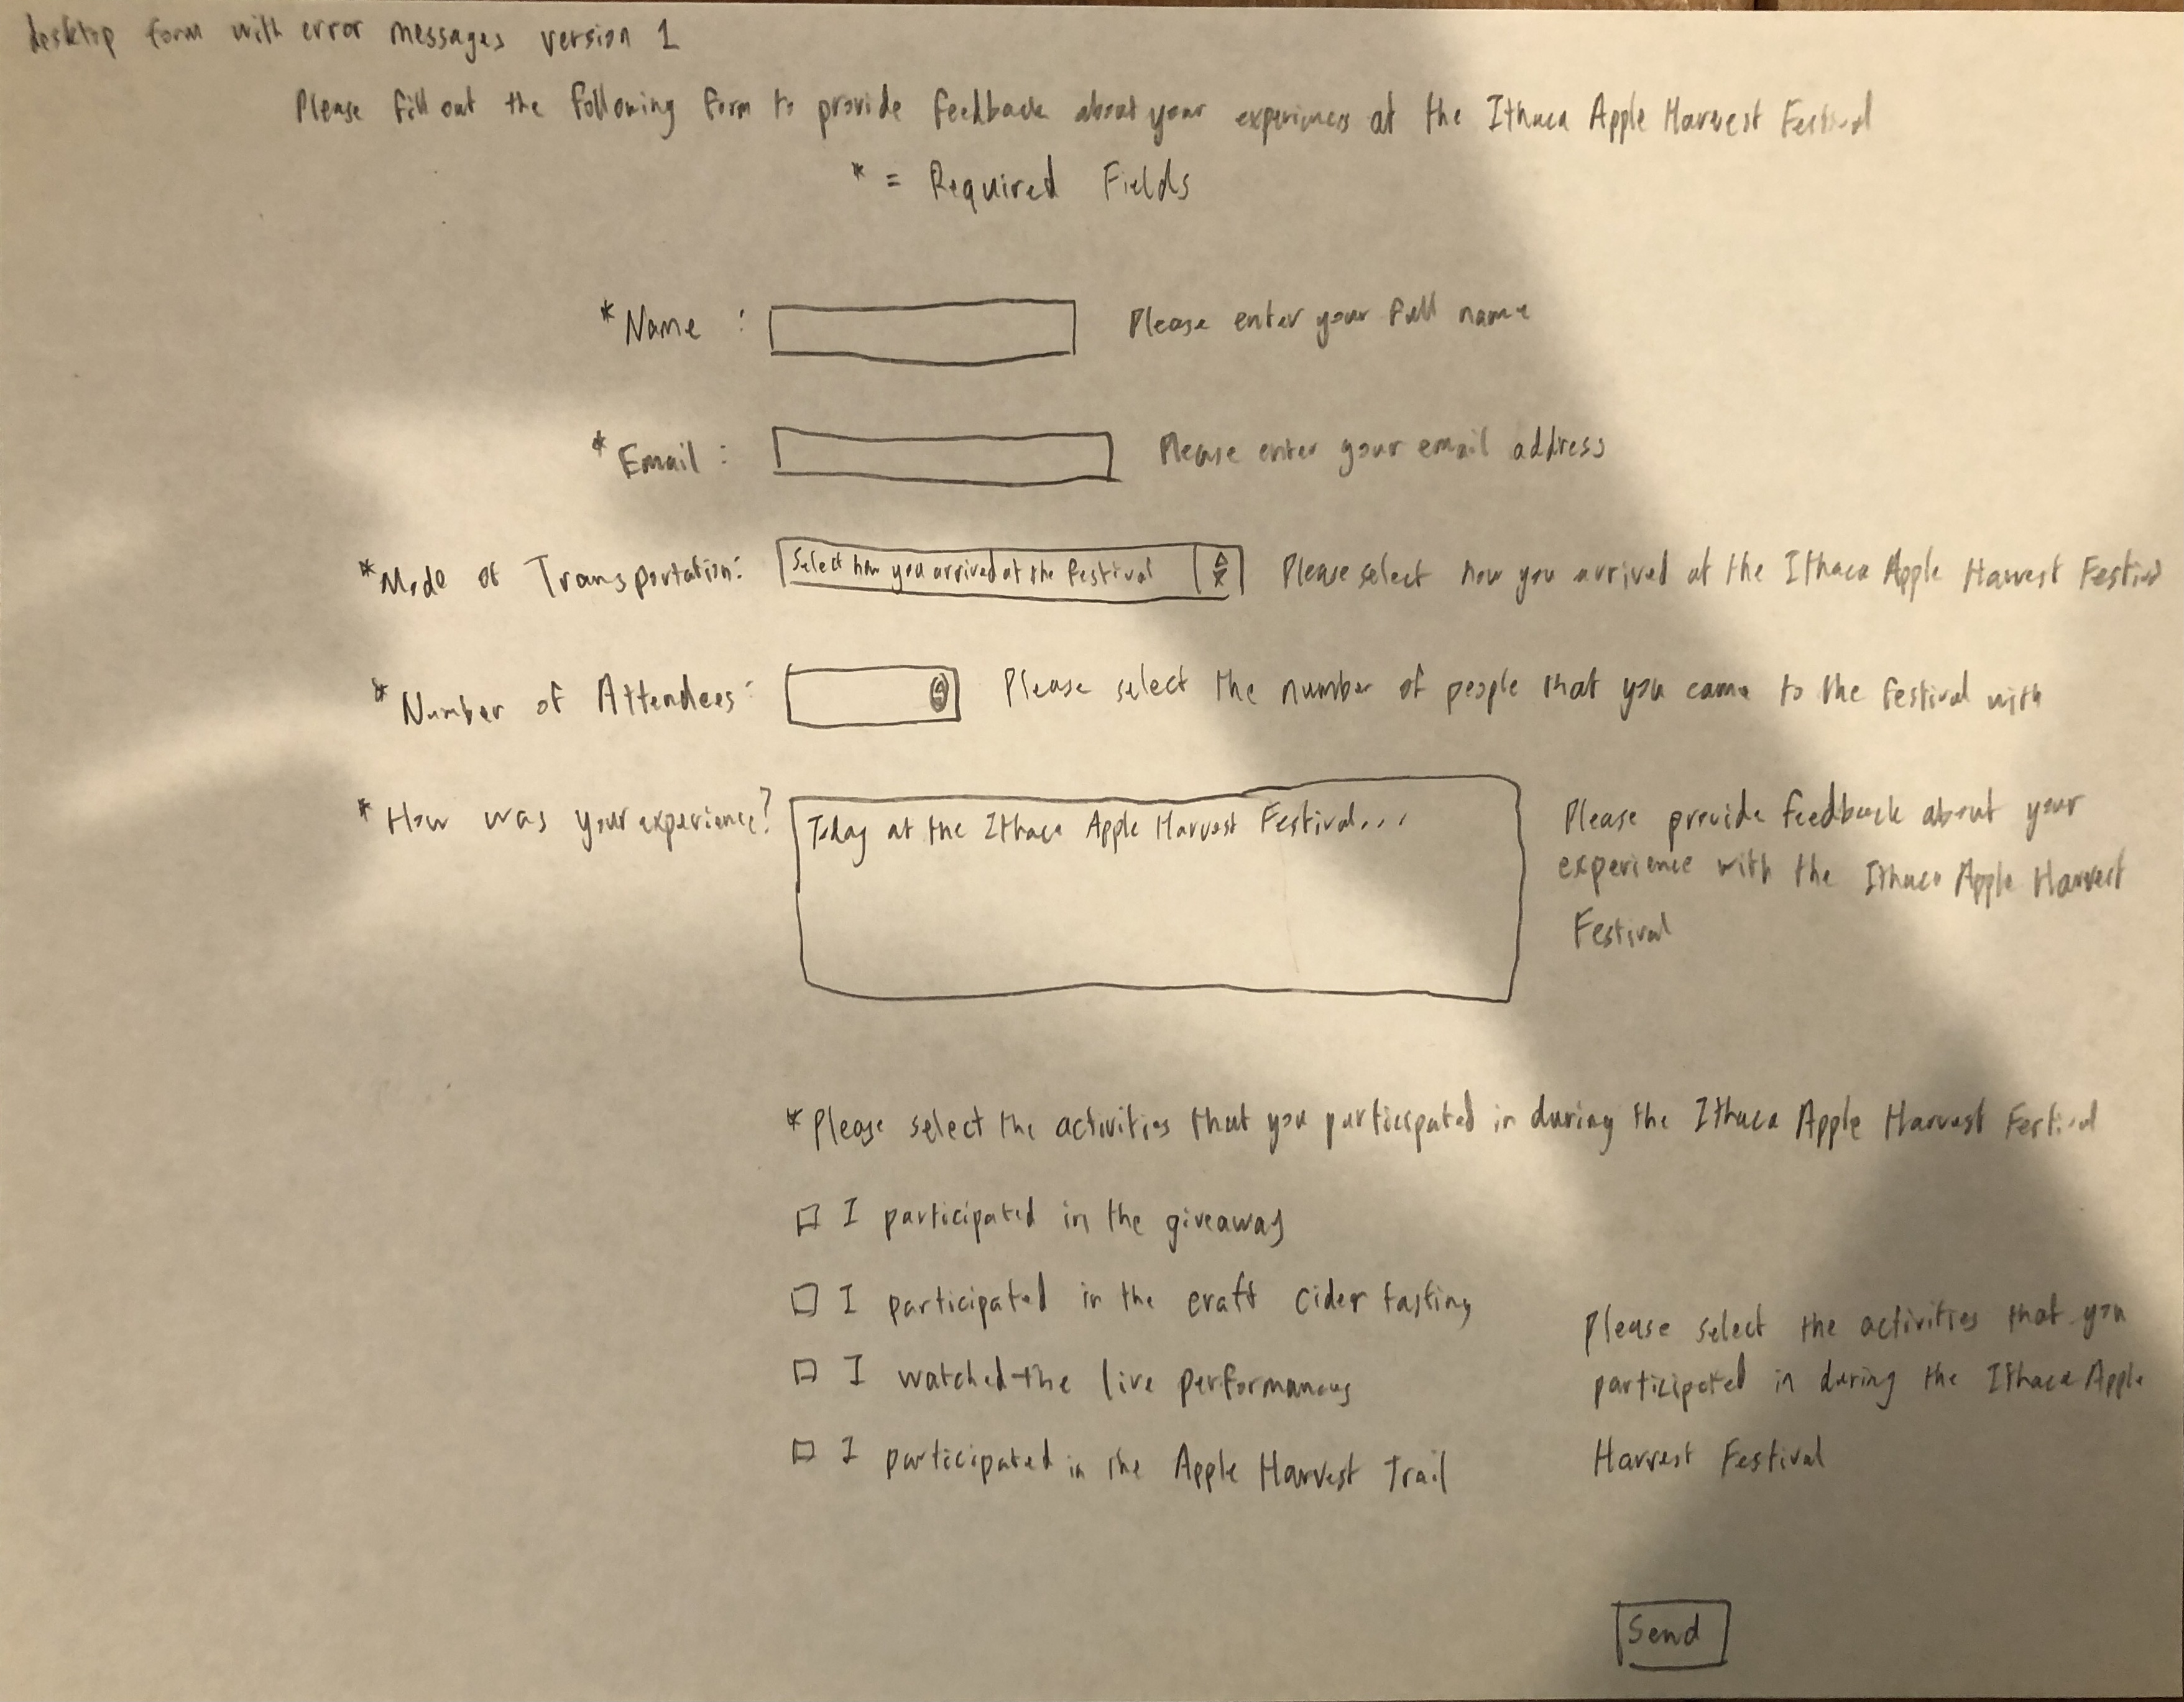 desktop form with error messages version 1
Please fill out the following form to provide feedback about your experiences at the Ithaca Apple Harvest Festival
* = Required Fields
*Name : Please enter your full name
*Email : Please enter your email address
*Mode of Transportation: Select how you arrived at the festival Please select how you arrived at the Ithaca Apple Harvest Festival
*Number of Attendees: Please select the number of people that you came to the festival with
*How was your experience? Today at the Ithaca Apple Harvest Festival... Please provide feedback about your
experience with the Ithaca Apple Harvest
Festival
*Please select the activities that you participated in during the Ithaca Apple Harvest Festival
I participated in the giveaway
I participated in the craft cider tasting
Please select the activities that you
I watched the live performances
participated in during the Ithaca Apple
I participated in the Apple Harvest Trail
Harvest Festival
Send